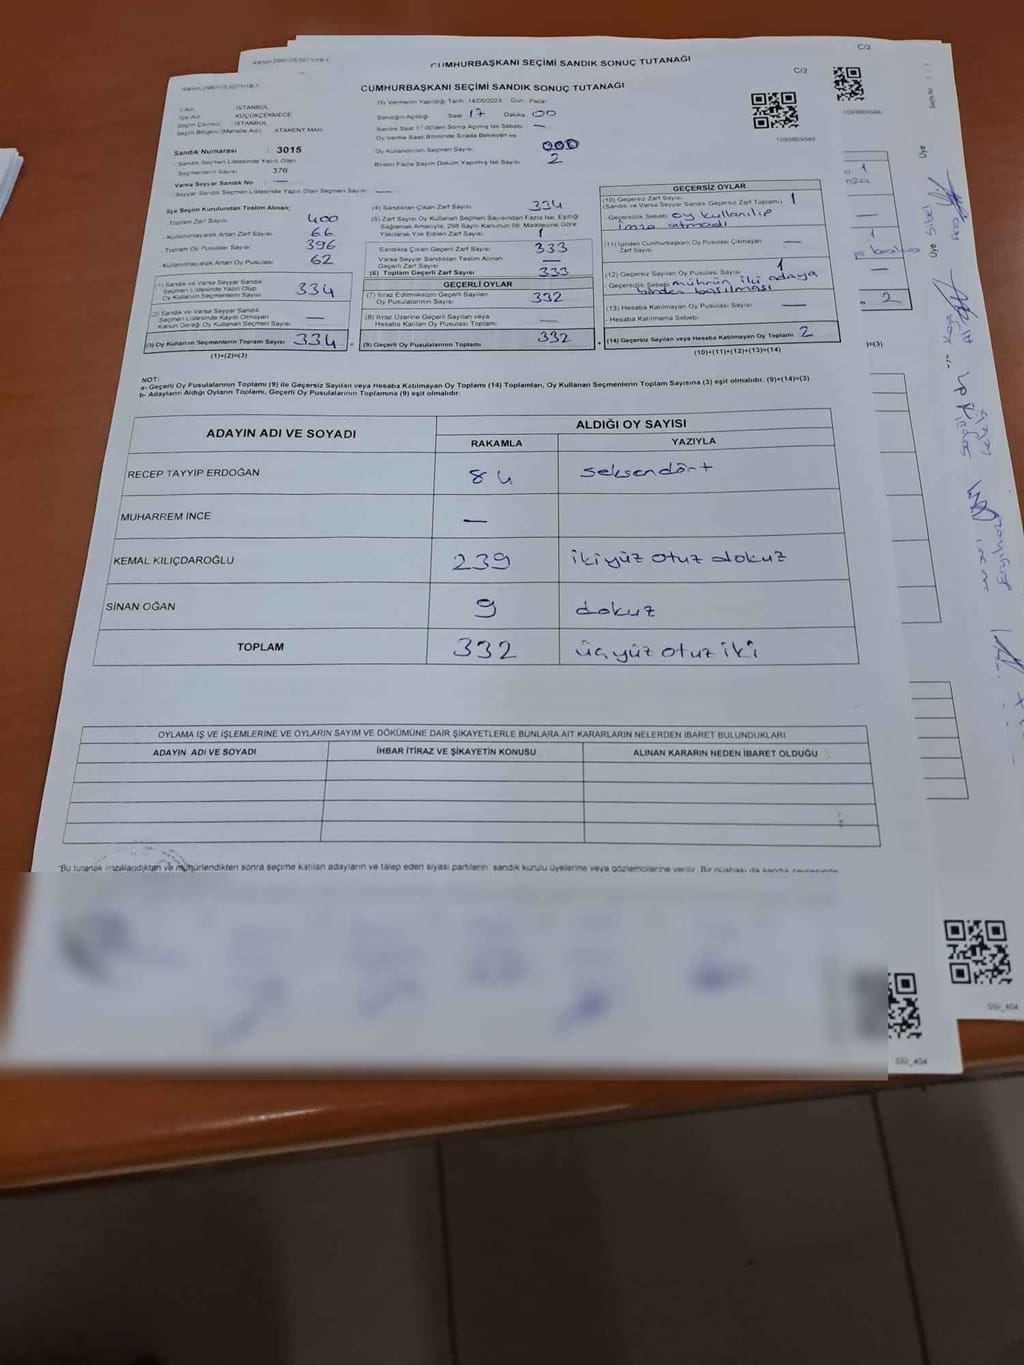 CUMHURBAŞKANI SEÇİMİ SANDIK SONUÇ TUTANAĞI
C/2
CUMHURBAŞKANI SEÇİMİ SANDIK SONUÇ TUTANAĞI
C/2
İl Adı : İSTANBUL
İlçe Adı : KÜÇÜKÇEKMECE
Seçim Çevresi : İSTANBUL
Seçim Bölgesi (Mahalle Adı) : ATAKENT MAH.
Sandık Numarası : 3015
- Sandık Seçmen Listesinde Yazılı Olan
Seçmenlerin Sayısı : 376
Varsa Seyyar Sandık No —
Seyyar Sandık Seçmen Listesinde Yazılı Olan Seçmen Sayısı —
Oy Vermenin Yapıldığı Tarih: 14/05/2023 Gün : Pazar
Sandığın Açıldığı Saat 17 Dakika 00
Sandık Saat 17.00'den Sonra Açılmış İse Sebebi —
Oy Verme Saati Bitiminde Sırada Bekleyen ve
Oy Kullandırılan Seçmen Sayısı 000
Birden Fazla Sayım Döküm Yapılmış İse Sayısı 2
1093869346
1093869346
İlçe Seçim Kurulundan Teslim Alınan;
- Toplam Zarf Sayısı 400
- Kullanılmayarak Artan Zarf Sayısı 66
- Toplam Oy Pusulası Sayısı 396
- Kullanılmayarak Artan Oy Pusulası 62
(1) Sandık ve Varsa Seyyar Sandık
Seçmen Listesinde Yazılı Olup
Oy Kullanan Seçmenlerin Sayısı 334
(2) Sandık ve Varsa Seyyar Sandık
Seçmen Listesinde Kayıtlı Olmayan
Kanun Gereği Oy Kullanan Seçmen Sayısı —
(3) Oy Kullanan Seçmenlerin Toplam Sayısı 334
(1)+(2)=(3)
(4) Sandıktan Çıkan Zarf Sayısı 334
(5) Zarf Sayısı Oy Kullanan Seçmen Sayısından Fazla İse, Eşitliği
Sağlamak Amacıyla; 298 Sayılı Kanunun 98. Maddesine Göre
Yakılarak Yok Edilen Zarf Sayısı 1
Sandıkta Çıkan Geçerli Zarf Sayısı 333
Varsa Seyyar Sandıktan Teslim Alınan
Geçerli Zarf Sayısı —
(6) Toplam Geçerli Zarf Sayısı 333
GEÇERLİ OYLAR
(7) İtiraz Edilmeksizin Geçerli Sayılan
Oy Pusulasının Sayısı 332
(8) İtiraz Üzerine Geçerli Sayılan veya
Hesaba Katılan Oy Pusulası Toplamı —
(9) Geçerli Oy Pusulalarının Toplamı 332
GEÇERSİZ OYLAR
(10) Geçersiz Zarf Sayısı
(Sandık ve Varsa Seyyar Sandık Geçersiz Zarf Toplamı) 1
- Geçersizlik Sebebi oy kullanılıp
imza atmadı
(11) İçinden Cumhurbaşkanı Oy Pusulası Çıkmayan
Zarf Sayısı —
(12) Geçersiz Sayılan Oy Pusulası Sayısı 1
- Geçersizlik Sebebi mührün iki adaya
birden basılması
(13) Hesaba Katılmayan Oy Pusulası Sayısı —
- Hesaba Katılmama Sebebi
(14) Geçersiz Sayılan veya Hesaba Katılmayan Oy Toplamı 2
(10)+(11)+(12)+(13)=(14)
NOT:
a- Geçerli Oy Pusulalarının Toplamı (9) ile Geçersiz Sayılan veya Hesaba Katılmayan Oy Toplamı (14) Toplamları, Oy Kullanan Seçmenlerin Toplam Sayısına (3) eşit olmalıdır. (9)+(14)=(3)
b- Adayların Aldığı Oyların Toplamı, Geçerli Oy Pusulalarının Toplamına (9) eşit olmalıdır.
ADAYIN ADI VE SOYADI ALDIĞI OY SAYISI
RAKAMLA YAZIYLA
RECEP TAYYİP ERDOĞAN 84 seksendört
MUHARREM İNCE —
KEMAL KILIÇDAROĞLU 239 ikiyüz otuz dokuz
SİNAN OĞAN 9 dokuz
TOPLAM 332 üçyüz otuz iki
OYLAMA İŞ VE İŞLEMLERİNE VE OYLARIN SAYIM VE DÖKÜMÜNE DAİR ŞİKAYETLERLE BUNLARA AİT KARARLARIN NELERDEN İBARET BULUNDUKLARI
ADAYIN ADI VE SOYADI İHBAR İTİRAZ VE ŞİKAYETİN KONUSU ALINAN KARARIN NEDEN İBARET OLDUĞU
"Bu tutanak imzalandıktan ve mühürlendikten sonra seçime katılan adayların ve talep eden siyasi partilerin sandık kurulu üyelerine veya gözlemcilerine verilir. Bir nüshası da sandık çevresinde
Üye
Üye Sibel
1
2
)=(3)
SSİ_404
SSİ_404